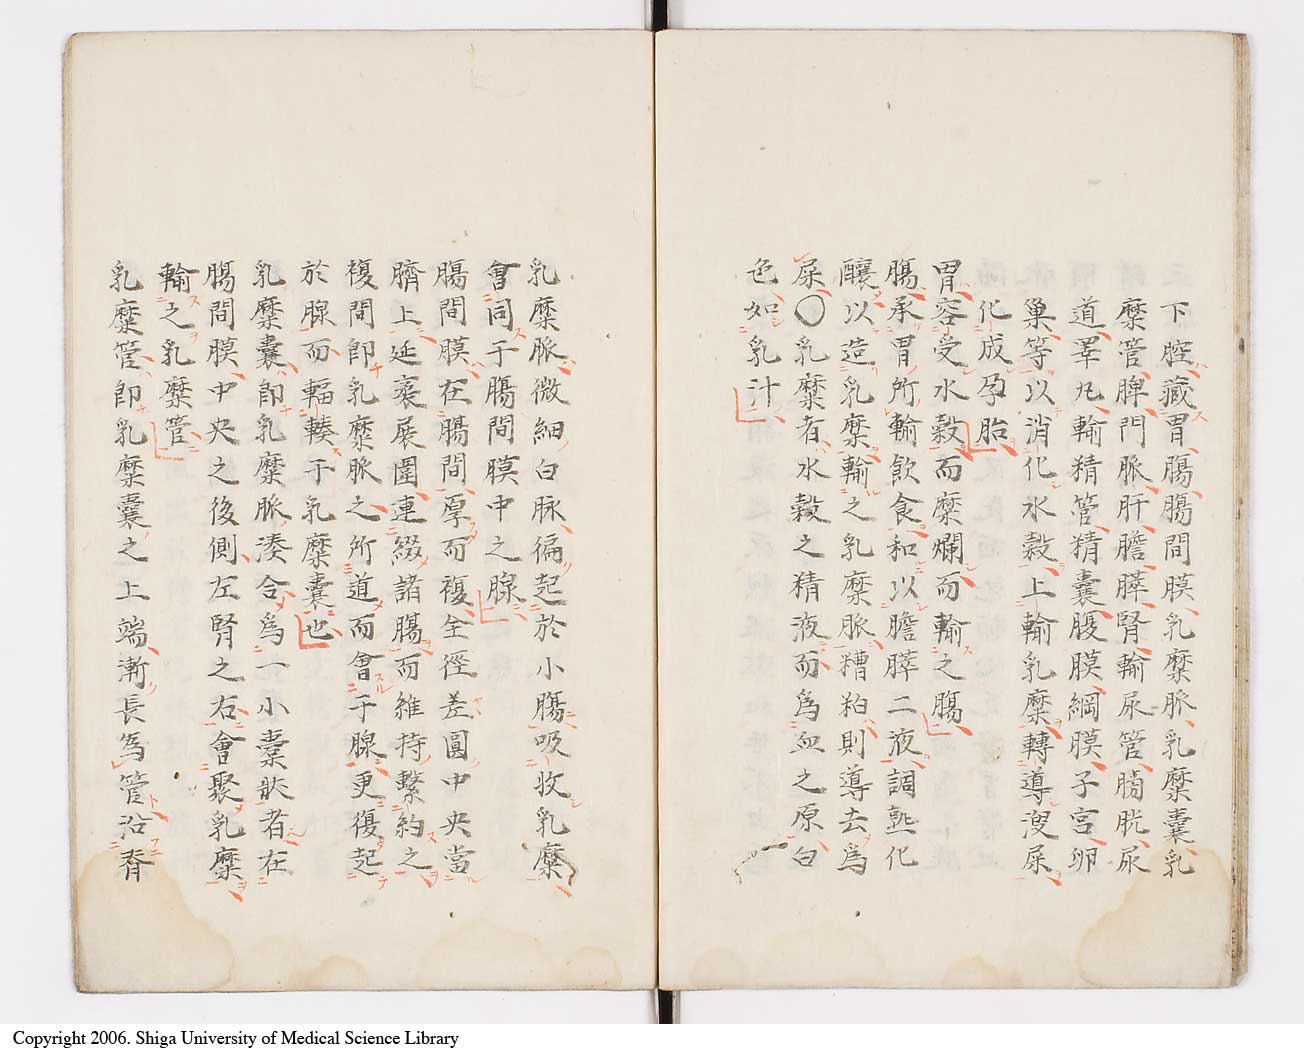 下腔藏胃腸腸間膜乳糜脈乳糜囊乳
糜管脾門脈肝膽膵腎輸尿管膀胱尿
道睪丸輸精管精囊腹膜綱膜子宮卵
巢等以消化水穀上輸乳糜轉導溲屎
化成孕胎
胃容受水穀而糜爛而輸之腸
腸承胃所輸飲食和以膽膵二液調熟化
釀以造乳糜輸之乳糜脈糟粕則導去為
屎〇乳糜者水穀之精液而為血之原白
色如乳汁
乳糜脈微細白脉徧起於小腸吸收乳糜
會同于腸間膜中之腺
腸間膜在腸間厚而複全徑差圓中央當
臍上延袤展圍連綴諸腸而維持繫約之
複間即乳糜脈之所道而會于腺更復起
於腺而輻輳于乳糜囊也
乳糜囊即乳糜脈湊合為一小囊狀者在
腸間膜中央之後側左腎之右會聚乳糜
輸之乳糜管
乳糜管即乳糜囊之上端漸長為管沿脊
Copyright 2006. Shiga University of Medical Science Library